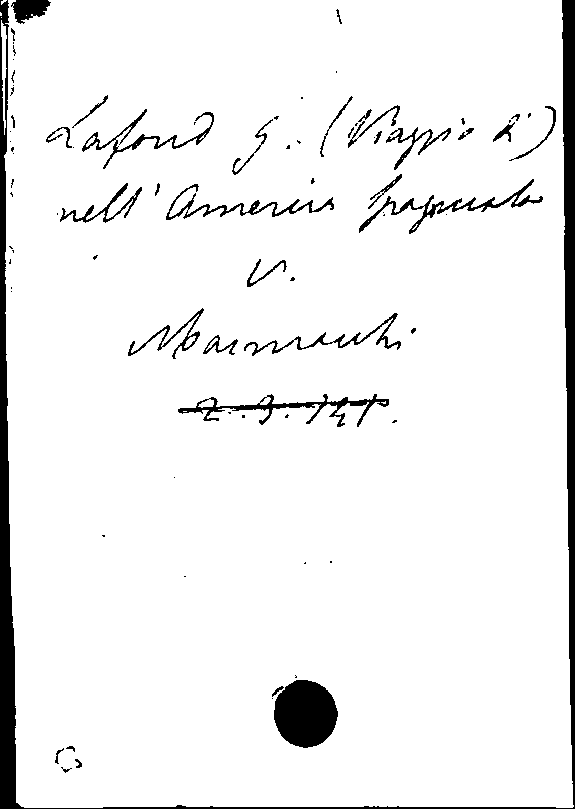 Lafond G. (Viaggio di)
nell' America Spagnuola
V.
Marmocchi
2.3.141.